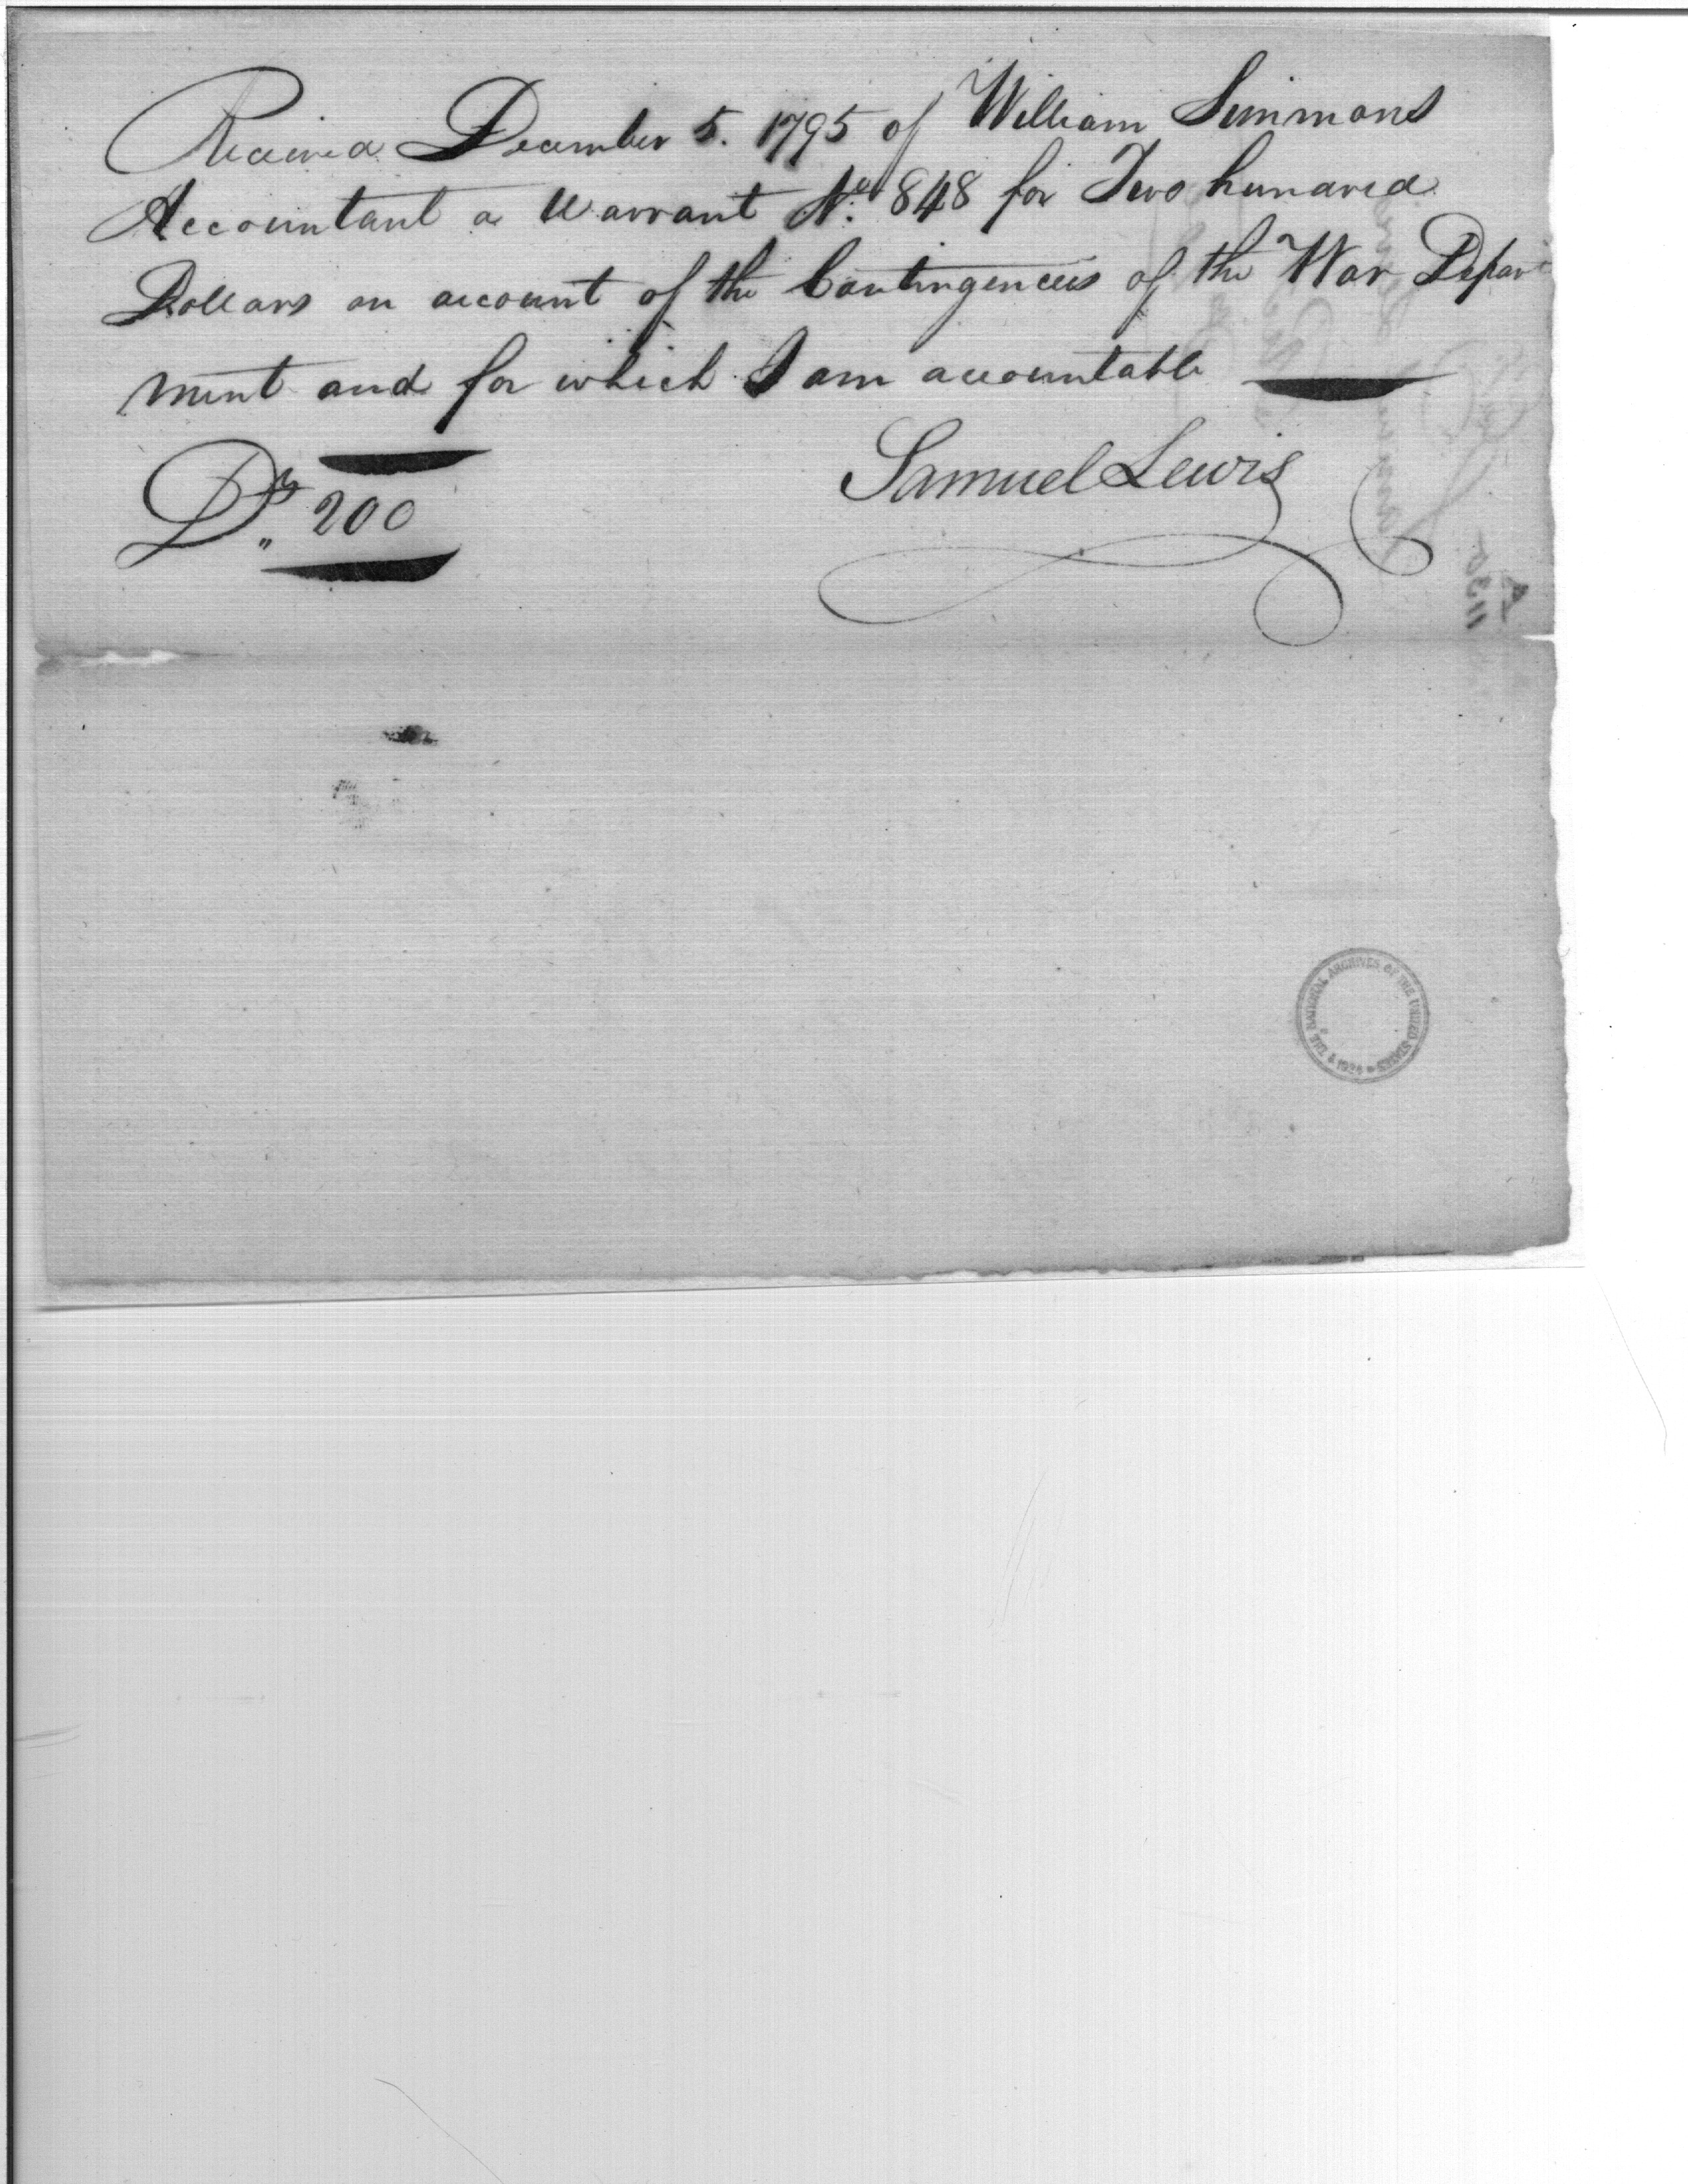 Received December 5. 1795 of William Simmons
Accountant a Warrant No. 848 for Two hundred
Dollars on account of the Contingencies of the War Depart
ment and for which I am accountable
Samuel Lewis
Drs. 200
THE NATIONAL ARCHIVES OF THE UNITED STATES 1934